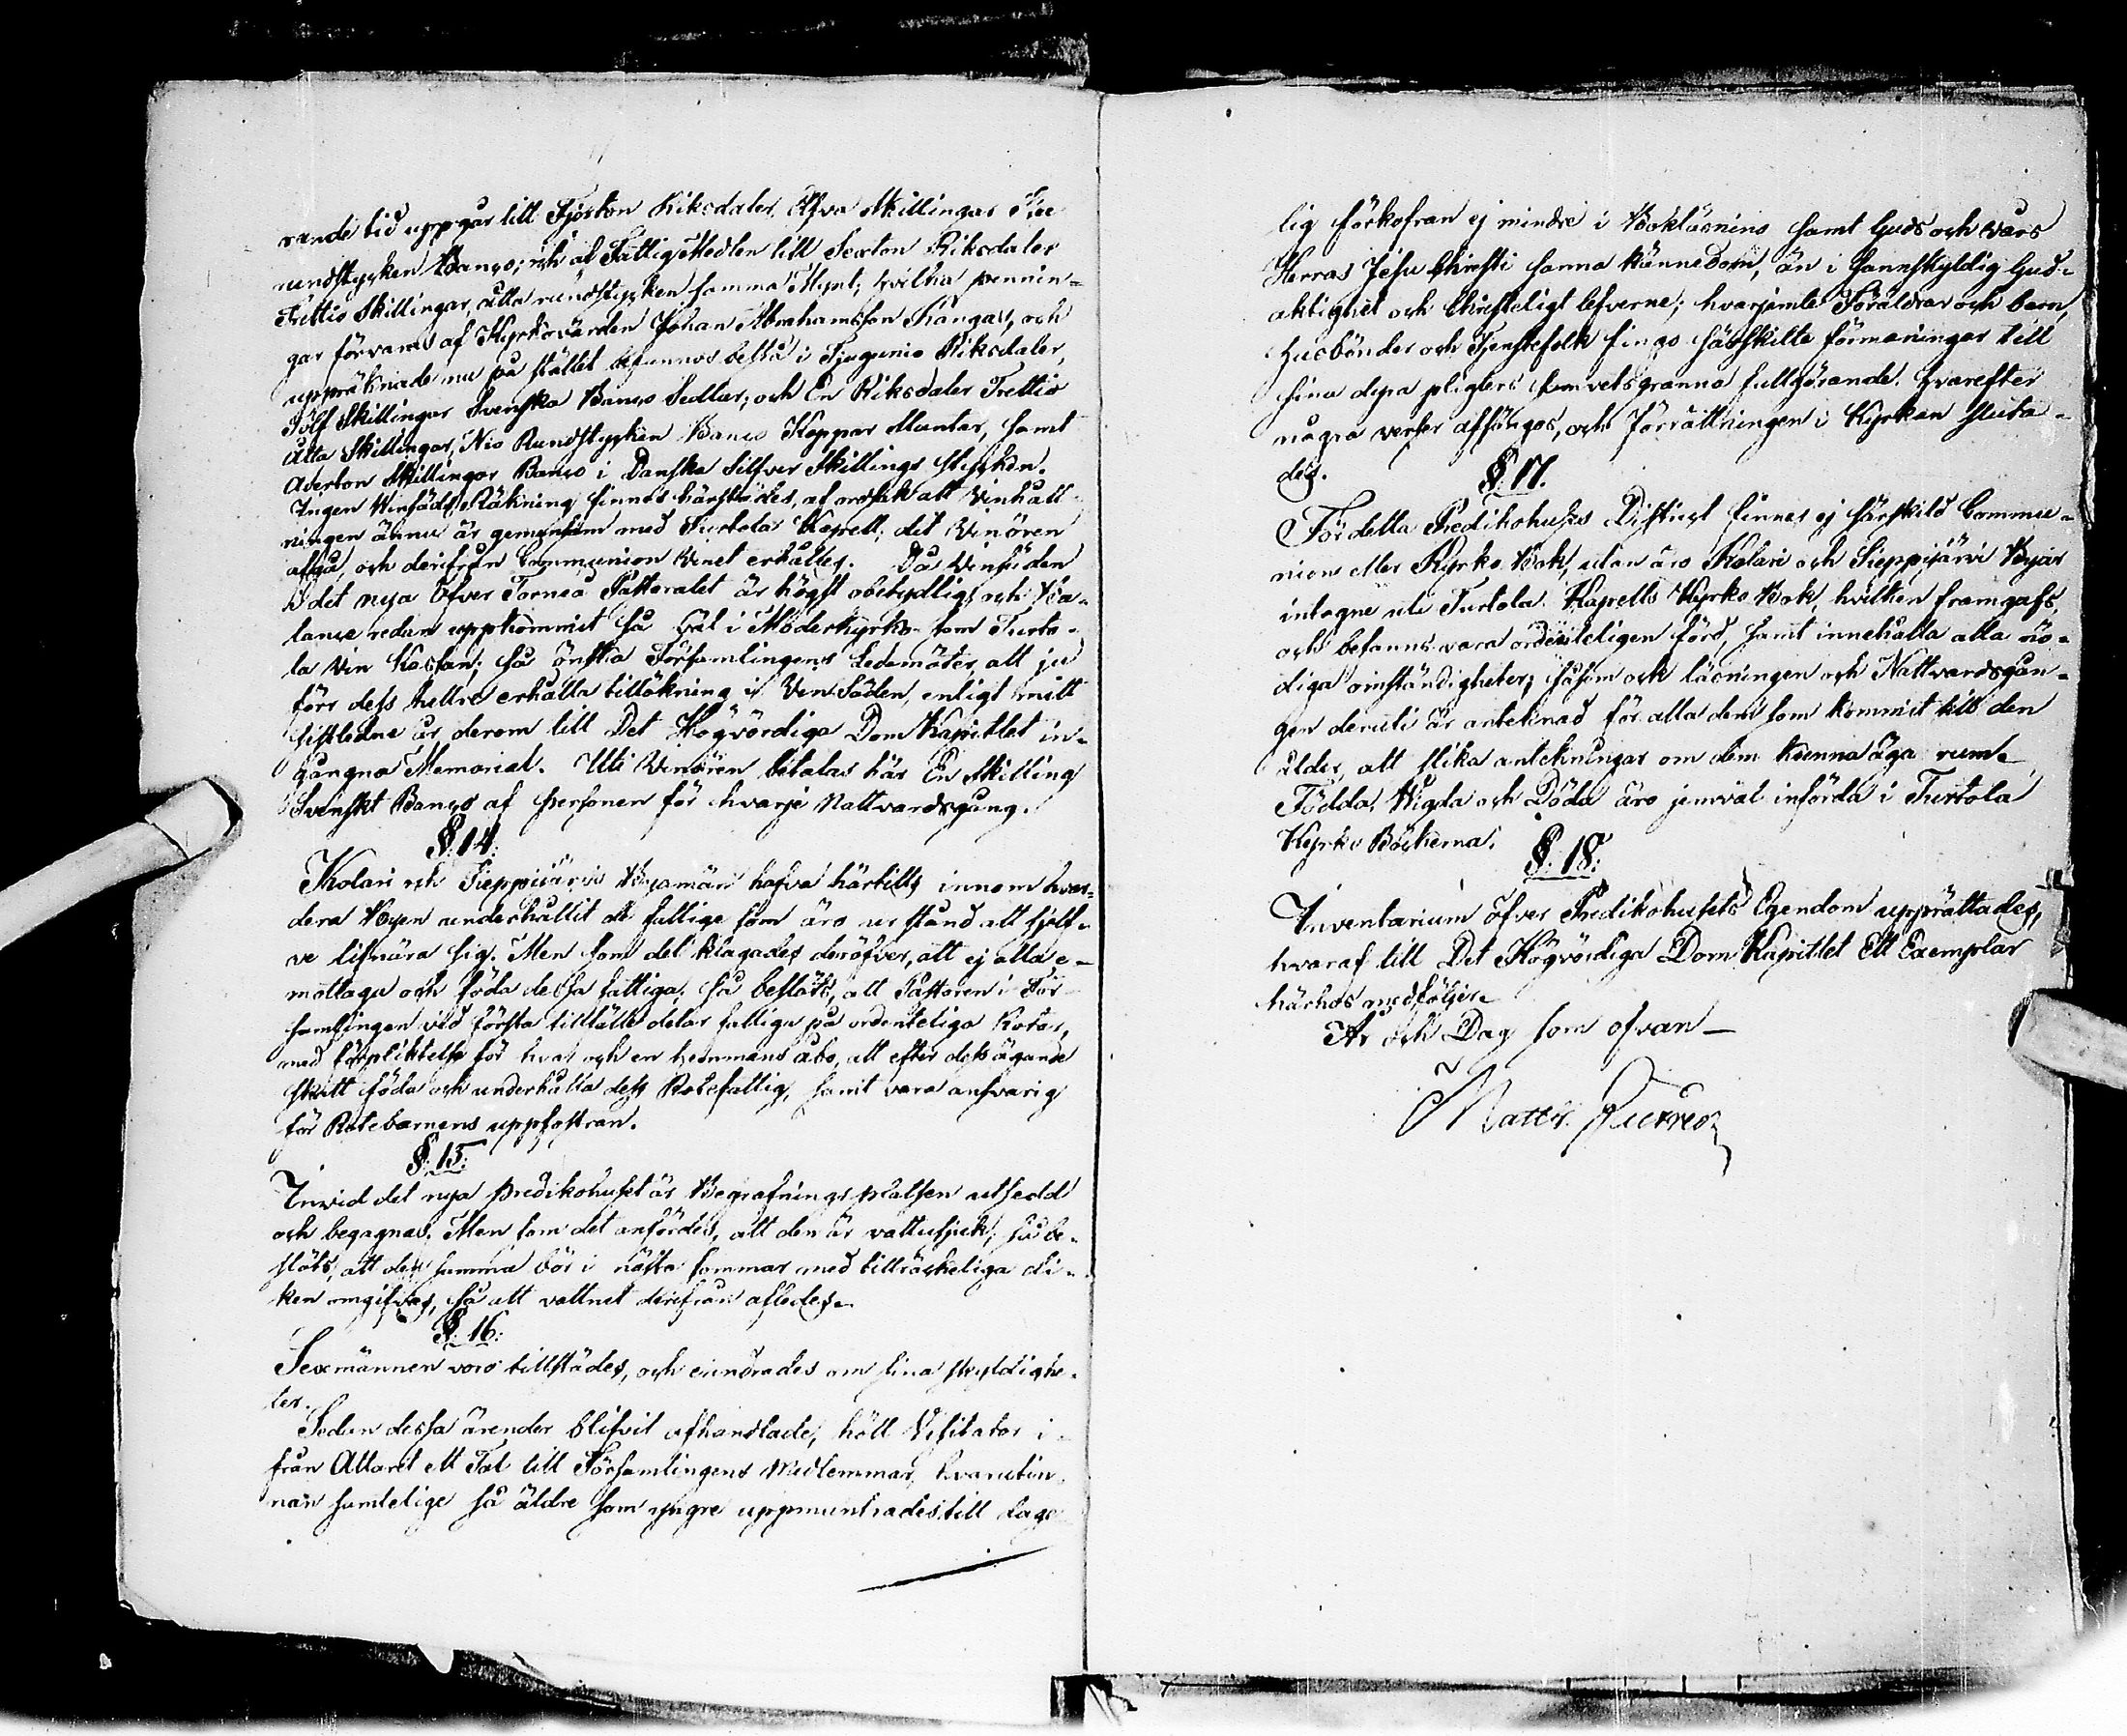 rande tid uppgår till Fjorton Riksdaler, Elfva Skillingar Tre
rundstycken Banco; och af Fattig Medlen till Sexton Riksdaler
Trettio Skillingar, åtta rundstycken samma Mynt; hvilka pennin-
gar förvaras af Kyrkovärden Johan Abrahamsson Kangas, och
uppräknade nu på stället befunnos bestå i Tjugunio Riksdaler,
Tolf Skillingar Svenska Banco Sedlar; och En Riksdaler Trettio
åtta Skillingar, Nio Rundstycken Banco Koppar Muntar, samt
Aderton Skillingar Banco i Danska Silfver Skillings stycken.
Ingen Vinsäds Räkning finnes härstädes, af orsak att Vinhåll
ningen ännu är gemensam med Turtola Kapell; dit Vinören
afgå, och derifrån Communion Vinet erhålles. Då Vinsäden
i det nya Öfver Torneå Pastoratet är högst obetydlig, och Ba-
lance redan uppkommit så väl i Moderkyrko- som Turto-
la Vin Kassan; så önska Församlingens Ledamöter, att ju
förr dess hellre erhålla tillökning i Vin Säden, enligt mitt
sistledne år derom till Det Högvördiga Dom Kapitlet in-
gångna Memorial. Uti Vinören betalas här En Skilling
Svenskt Banco af personen för hvarje Nattvardsgång.
§. 14.
Kolari och Sieppijärvi Byamän hafva härtills innom hvar-
dera Byen underhållit de fattige som äro ur stånd att sjelf-
ve lifnära sig. Men som det klagades deröfver, att ej alla e-
mottaga och föda dessa fattiga; så beslöts, att Pastoren i För-
samlingen vid första tillfälle delar fattige på ordenteliga Rotar,
med förpliktelse för hvar och en hemmans åbo, att efter dess ägande
skatt föda och underhålla dess Rotefattig, samt vara answarig
för Rotebarnens uppfostran.
§. 15.
Invid det nya predikohuset är Begrafnings platsen utsedd
och begagnas. Men som det anfördes, att den är vattusjuk; så be-
slöts, att den samma bör i nästa sommar med tillräckeliga di-
ken omgifvas, så att vattnet derifrån afledes.
§. 16.
Sexmännen voro tillstädes, och erindrades om sina skyldighe-
ter.
Sedan dessa ärender blifvit afhandlade, höll Visitator i-
från Altaret ett Tal till Församlingens Medlemmar, hvarutin-
nan samtelige så äldre som yngre uppmuntrades till dage
lig förkofran ej mindre i Bokläsning samt Guds och vårs
Herras Jesu Christi sanna kännedom, än i sannskyldig Gud-
aktighet och Christeligt lefverne; hvarjemte Föräldrar och barn,
husbönder och Tjenstefolk fingo särskilte förmaningar till
sina dyra pligters samvetsgranna fullgörande. Hvarefter
några verser afsångos, och förrättningen i Kyrkan sluta-
des.
§. 17.
För detta Predikohuses District finnes ej särskild Commu-
nion eller Kyrko Bok, utan äro Kolari och Sieppijärvi Byar
intagne uti Turtola Kapells Kyrko Bok, hvilken framgafs,
och befanns vara ordenteligen förd, samt innehålla alla nö-
diga omständigheter; såsom ock läsningen och Nattvardsgån-
gen deruti är anteknad för alla dem som kommit till den
ålder, att slika antekningar om dem kunna äga rum.
Födda, Vigda och Döda äro jemväl införda i Turtola
Kyrko Böckerna.
§. 18.
Inventarium öfver Predikohusets Egendom upprättades,
hvaraf till Det Högvördiga Dom Kapitlet Ett Exemplar
härhos medföljer.
År och Dag som ofvan
Matts